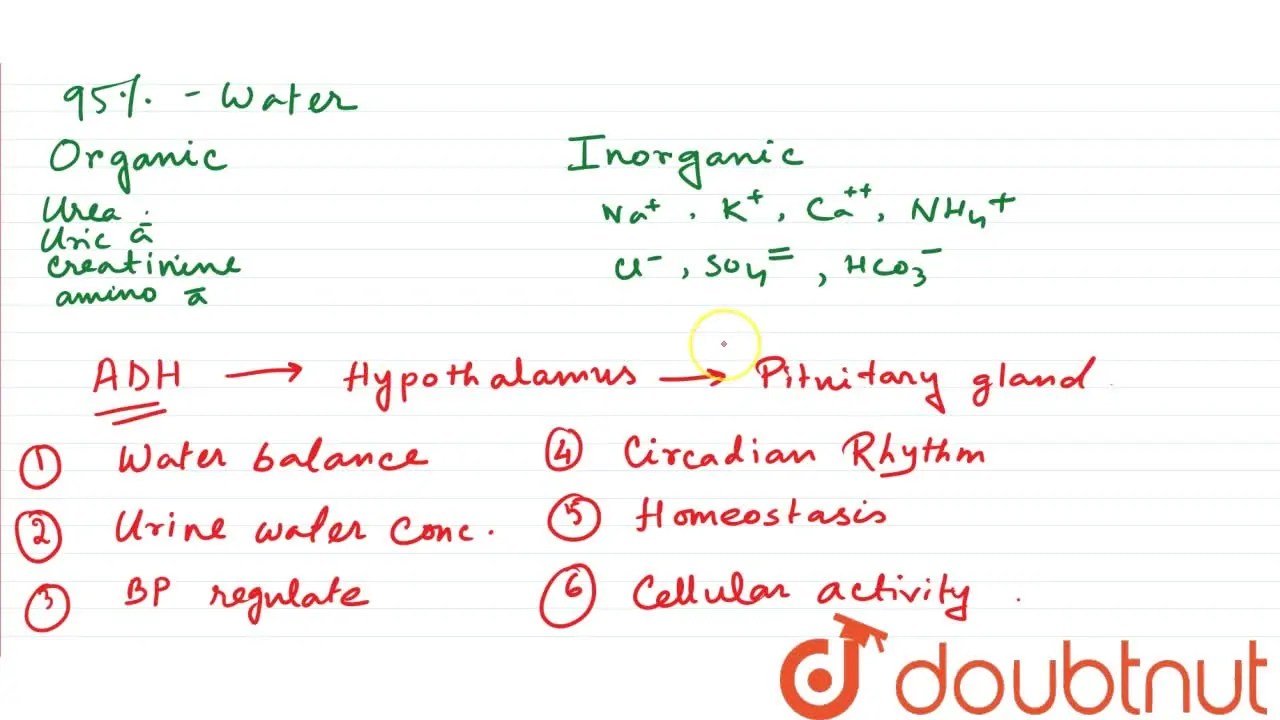 95% - Water
Organic
Inorganic
Urea.
Uric a̅
creatinine
amino a̅
Na⁺, K⁺, Ca⁺⁺, NH₄⁺
Cl⁻, SO₄⁼, HCO₃⁻
ADH → Hypothalamus → Pituitary gland.
① Water balance
② Urine water conc.
③ BP regulate
④ Circadian Rhythm
⑤ Homeostasis
⑥ Cellular activity.
doubtnut